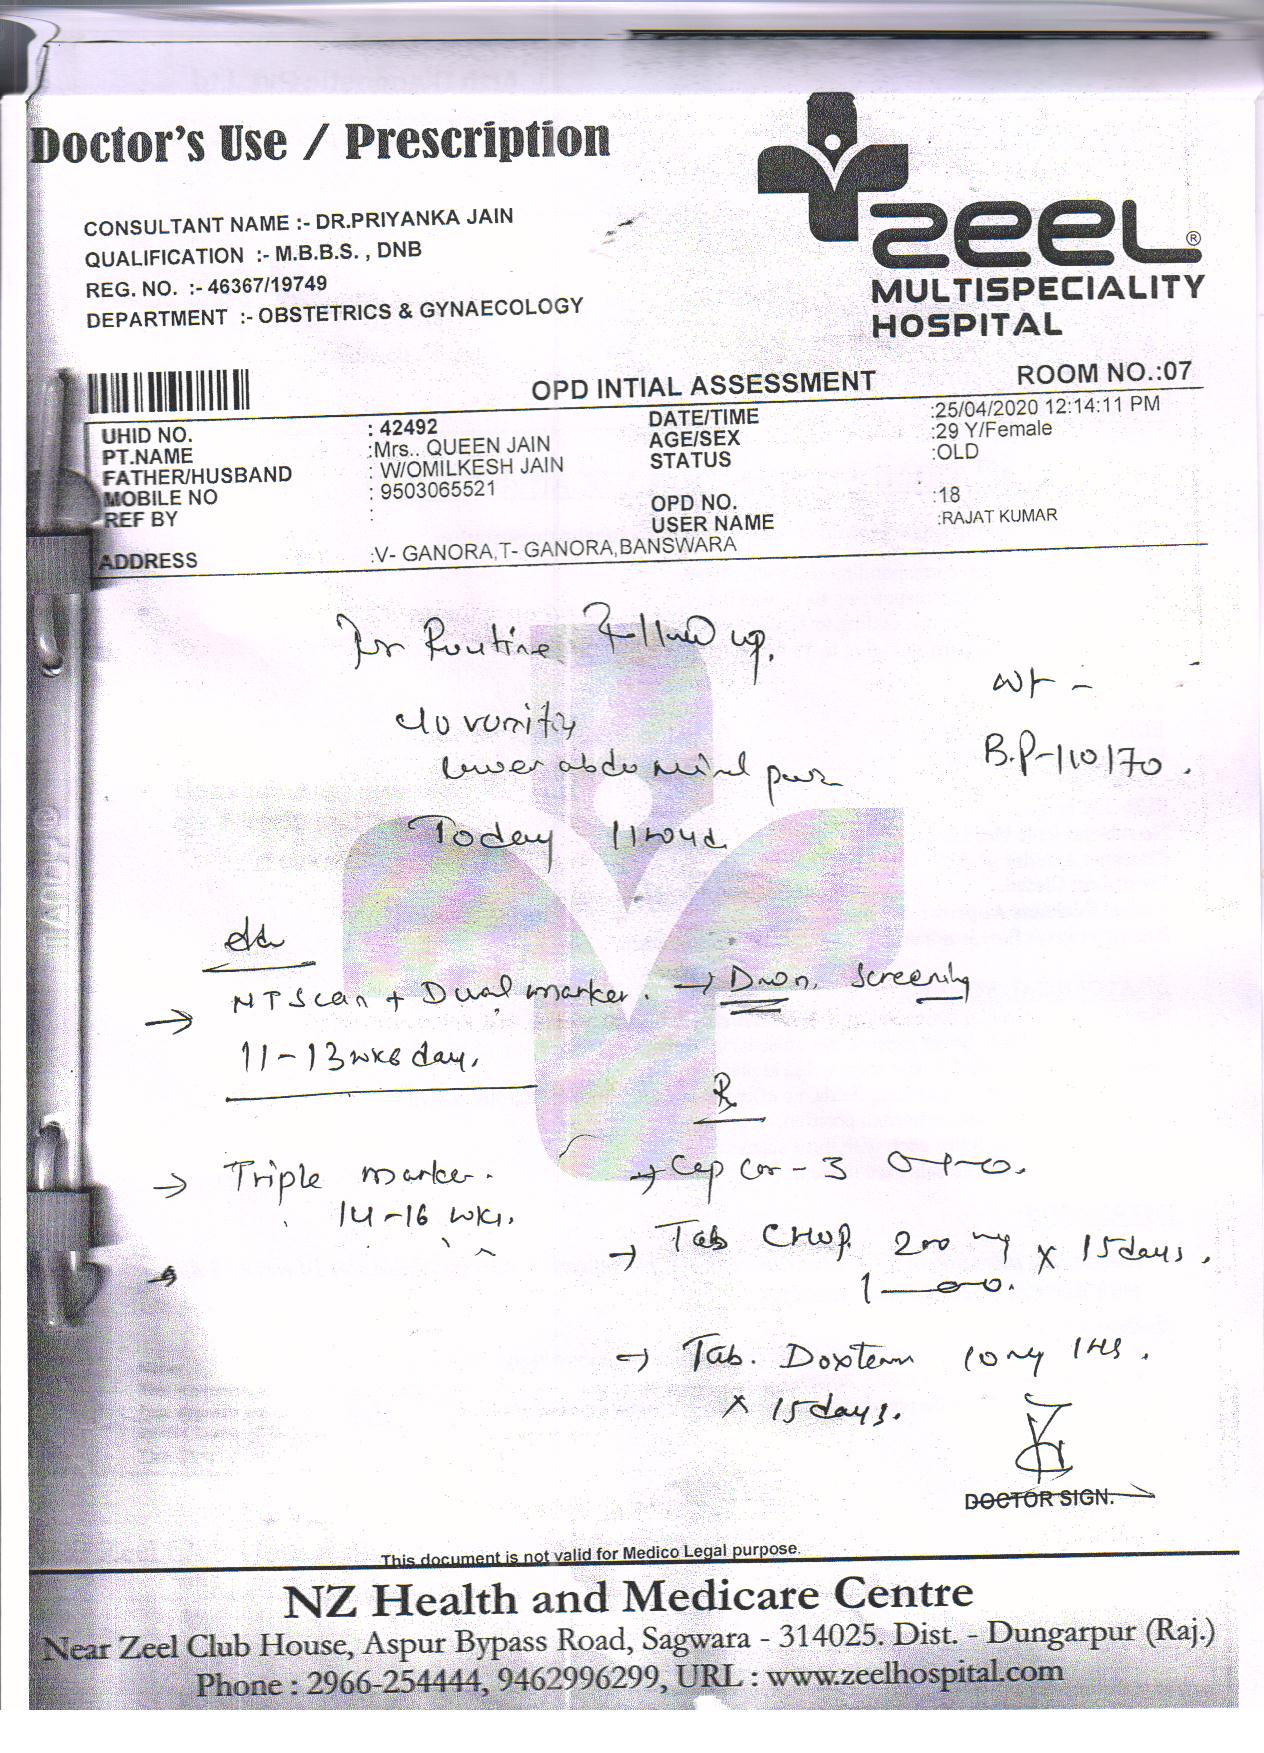 Doctor's Use / Prescription
CONSULTANT NAME :- DR.PRIYANKA JAIN
QUALIFICATION :- M.B.B.S. , DNB
REG. NO. :- 46367/19749
DEPARTMENT :- OBSTETRICS & GYNAECOLOGY
zeel ®
MULTISPECIALITY
HOSPITAL
OPD INTIAL ASSESSMENT ROOM NO.:07
UHID NO. : 42492 DATE/TIME :25/04/2020 12:14:11 PM
PT.NAME :Mrs.. QUEEN JAIN AGE/SEX :29 Y/Female
FATHER/HUSBAND : W/OMILKESH JAIN STATUS :OLD
MOBILE NO : 9503065521 OPD NO. :18
REF BY : USER NAME :RAJAT KUMAR
ADDRESS :V- GANORA,T- GANORA,BANSWARA
For Routine Follow up.
wt -
c/o vomity
B.P-110/70.
lower abdominal pain
Today
NT Scan + Dual marker. → Down. Screening
11-13 wks day.
Rx
→ Triple marker.
14-16 wks.
→ Cap Cor-3 0-1-0.
→ Tab 200 mg x 15 days.
1-0-0.
→ Tab. Doxterm 10 mg 1HS.
x 15 days.
DOCTOR SIGN.
This document is not valid for Medico Legal purpose.
NZ Health and Medicare Centre
Near Zeel Club House, Aspur Bypass Road, Sagwara - 314025. Dist. - Dungarpur (Raj.)
Phone : 2966-254444, 9462996299, URL : www.zeelhospital.com